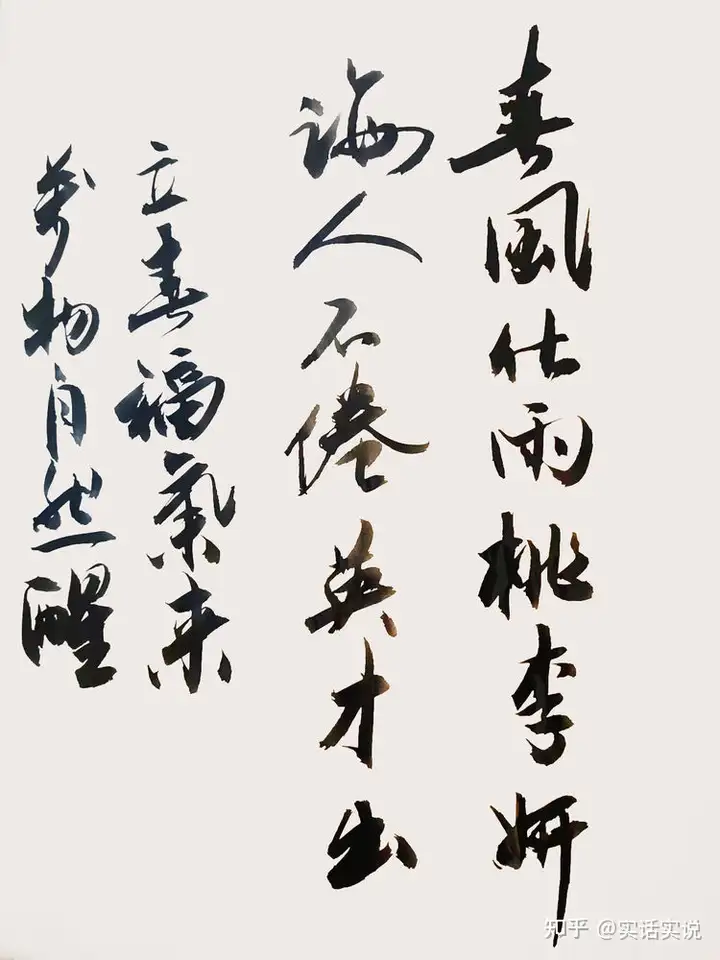 春風化雨桃李妍
誨人不倦英才出
立春福氣来
萬物自然醒
知乎 @实话实说